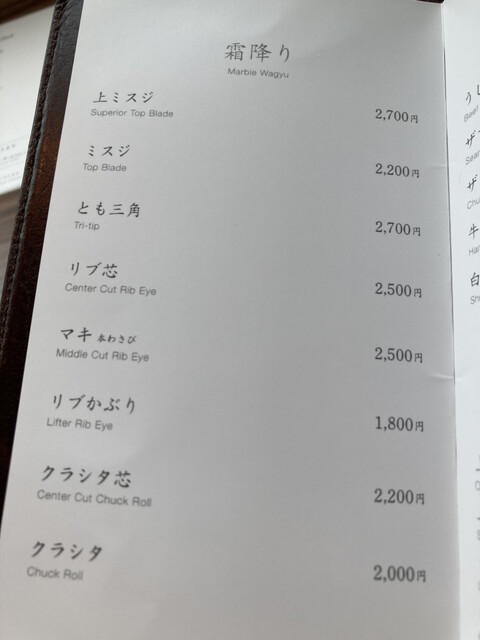 霜降り
Marble Wagyu
上ミスジ 2,700円
Superior Top Blade
ミスジ 2,200円
Top Blade
とも三角 2,700円
Tri-tip
リブ芯 2,500円
Center Cut Rib Eye
マキ 本わさび 2,500円
Middle Cut Rib Eye
リブかぶり 1,800円
Lifter Rib Eye
クラシタ芯 2,200円
Center Cut Chuck Roll
クラシタ 2,000円
Chuck Roll
うし
Beef
ザ
ザ
Chu
牛
白